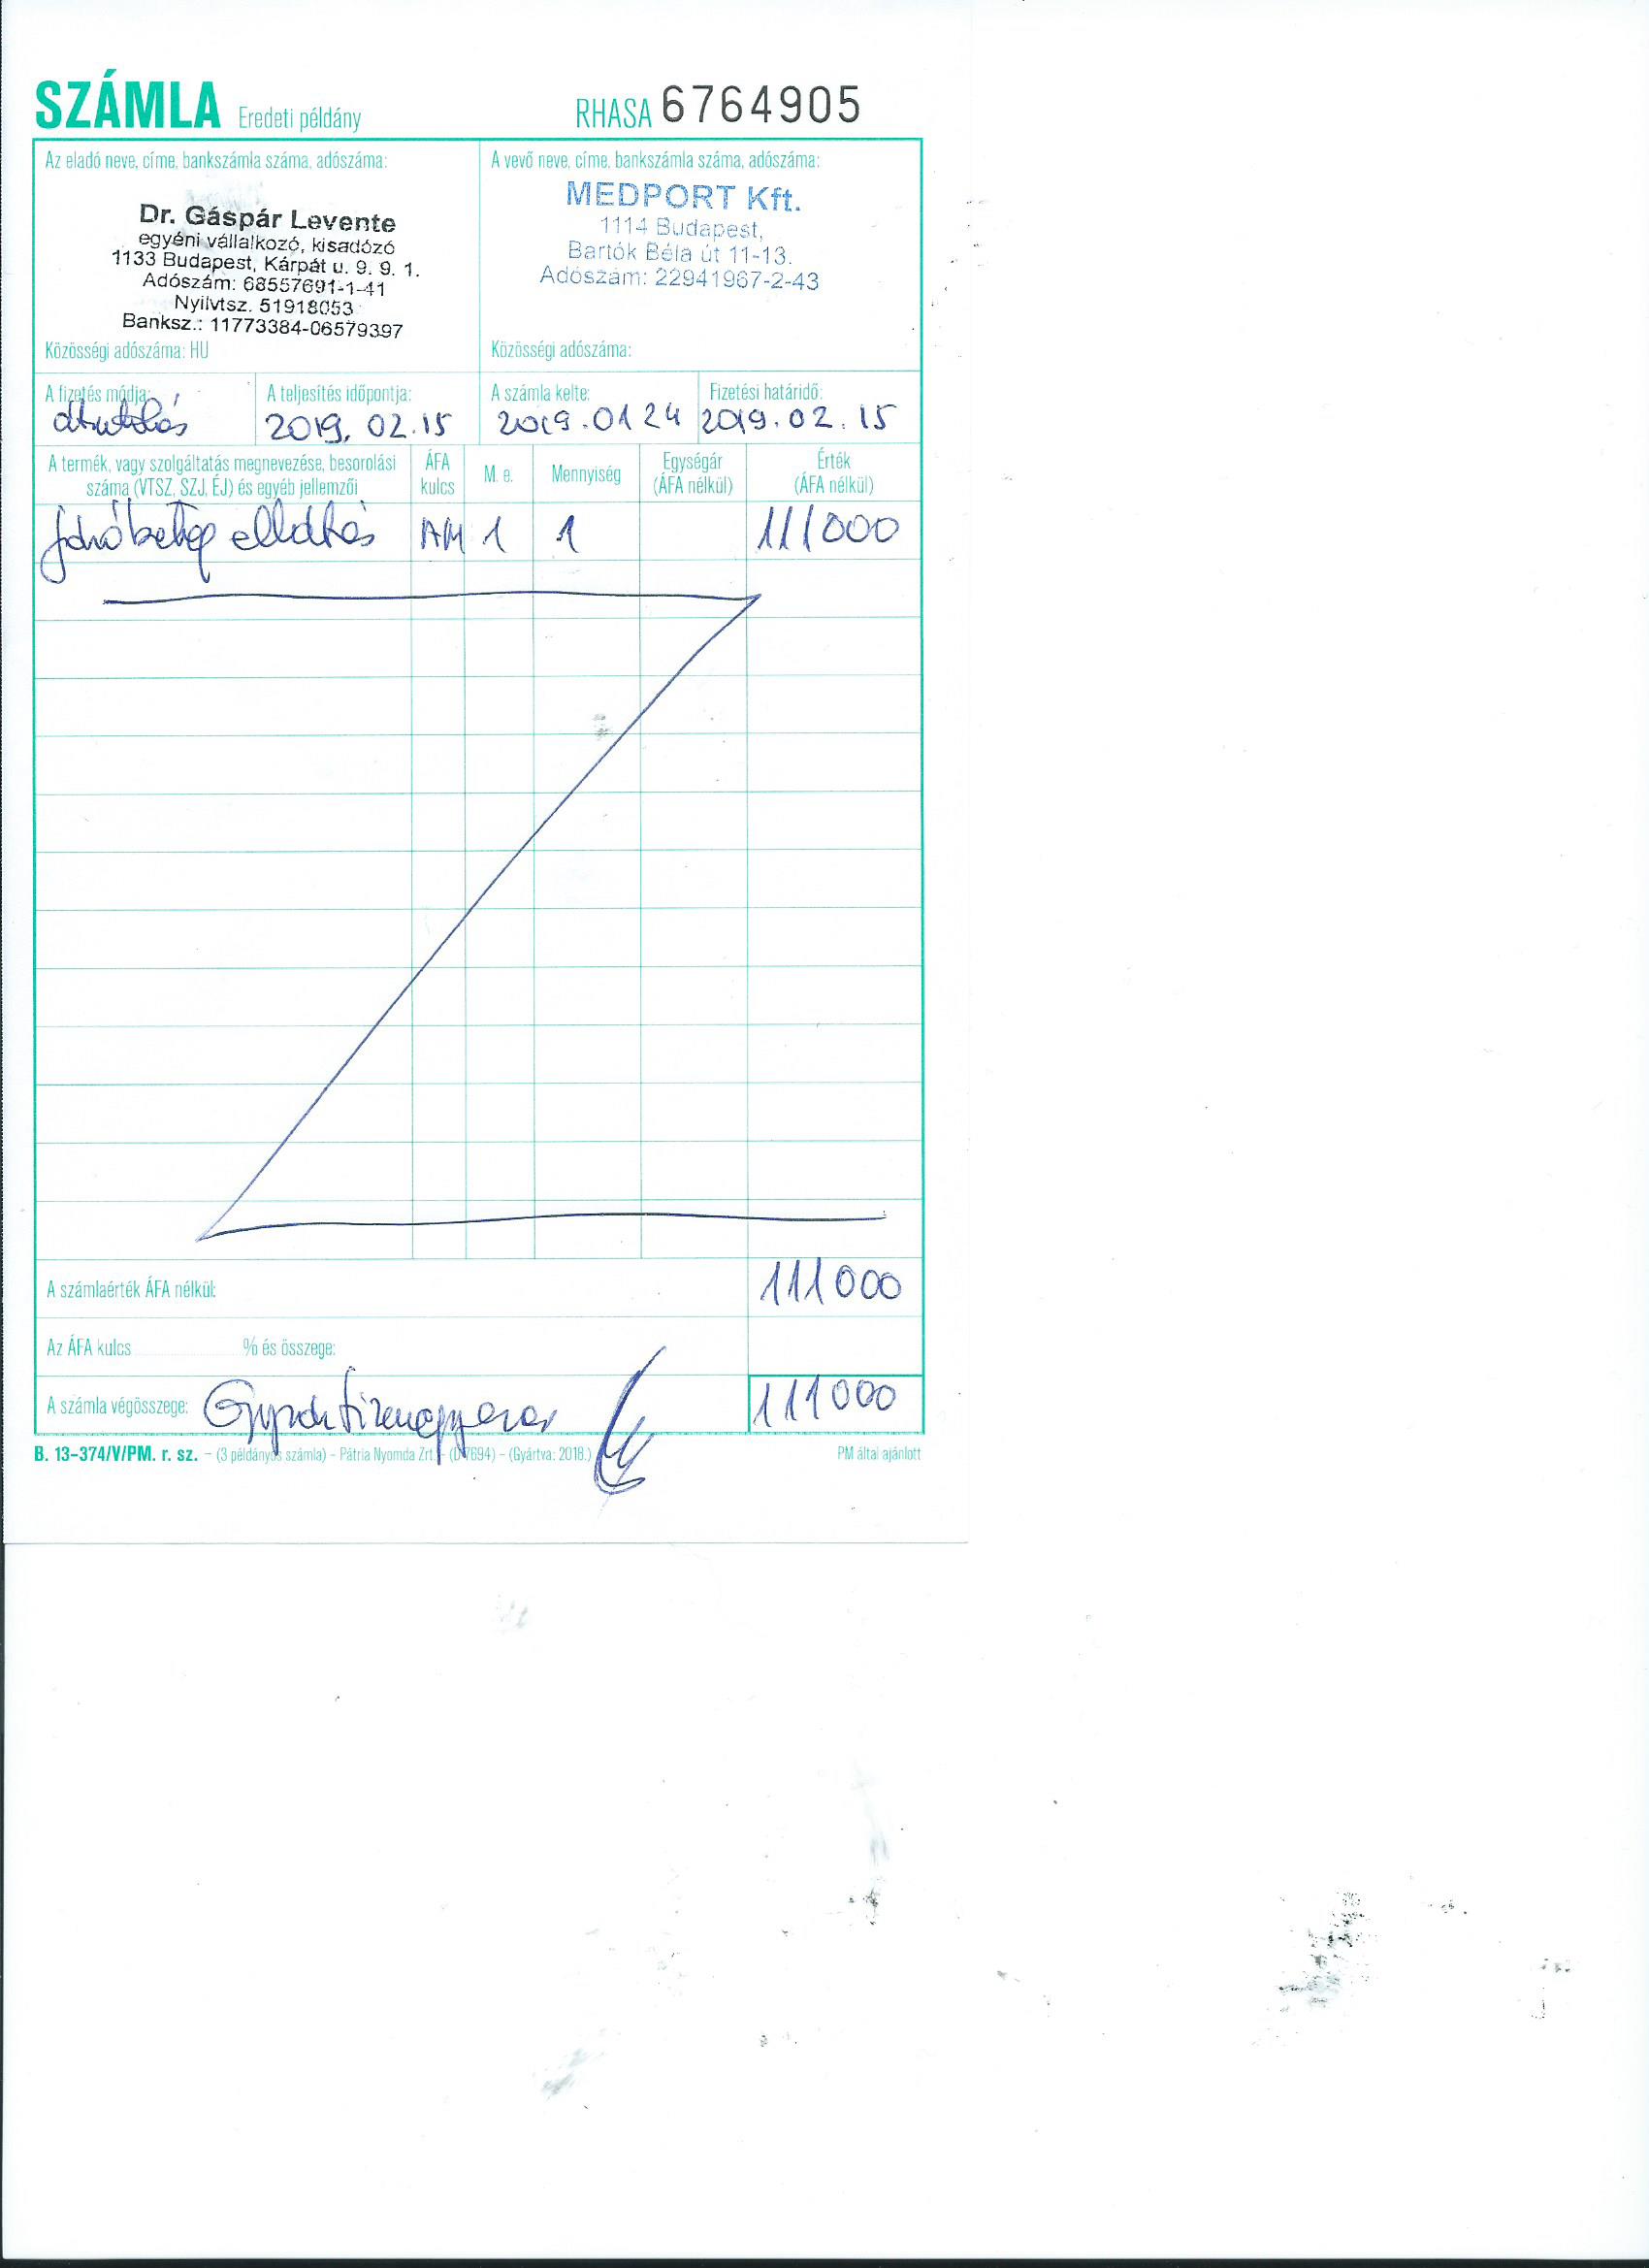 SZÁMLA Eredeti példány RHASA 6764905
Az eladó neve, címe, bankszámla száma, adószáma:
Dr. Gáspár Levente
egyéni vállalkozó, kisadózó
1133 Budapest, Kárpát u. 9. 9. 1.
Adószám: 68557691-1-41
Nyilvtsz. 51918053
Banksz.: 11773384-06579397
Közösségi adószáma: HU
A vevő neve, címe, bankszámla száma, adószáma:
MEDPORT Kft.
1114 Budapest,
Bartók Béla út 11-13.
Adószám: 22941967-2-43
Közösségi adószáma:
A fizetés módja:
átutalás
A teljesítés időpontja:
2019. 02.15
A számla kelte:
2019.01 24
Fizetési határidő:
2019.02.15
A termék, vagy szolgáltatás megnevezése, besorolási
száma (VTSZ, SZJ, ÉJ) és egyéb jellemzői
ÁFA
kulcs
M. e.
Mennyiség
Egységár
(ÁFA nélkül)
Érték
(ÁFA nélkül)
járóbeteg ellátás AM 1 1 111000
A számlaérték ÁFA nélkül: 111000
Az ÁFA kulcs % és összege:
A számla végösszege: 111000
B. 13-374/V/PM. r. sz. – (3 példányos számla) – Pátria Nyomda Zrt. – (Gyártva: 2018.) PM által ajánlott